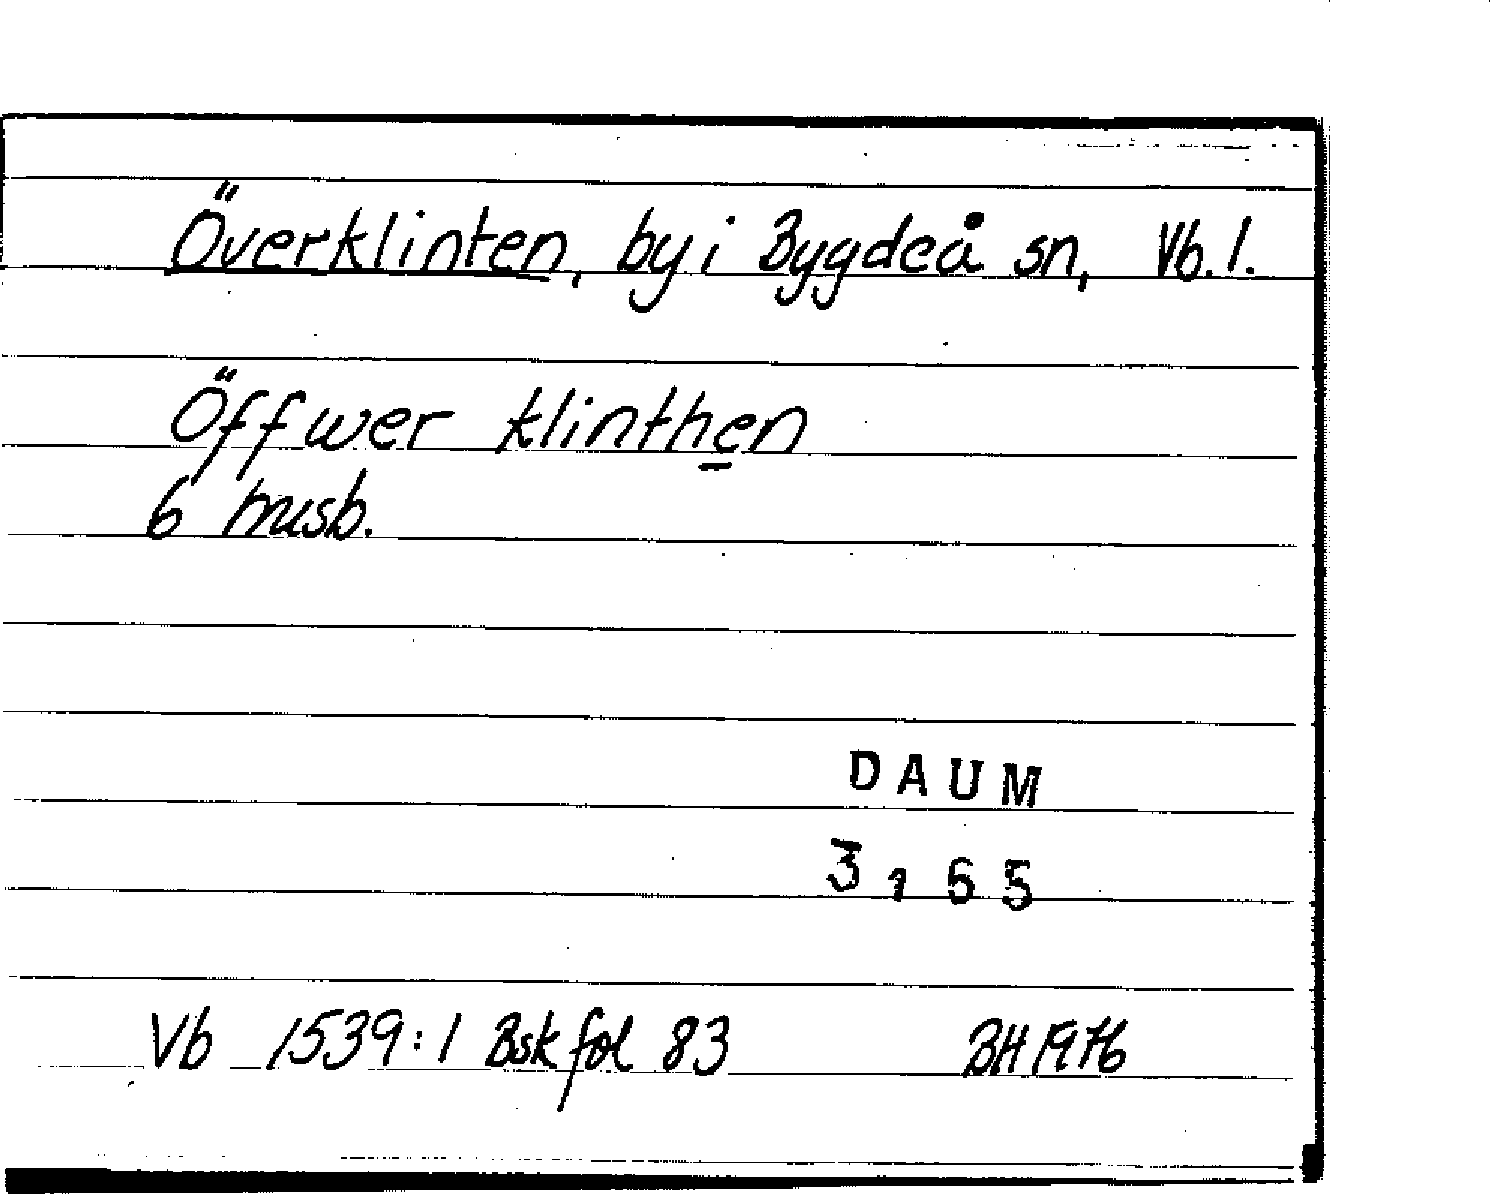 Överklinten, by i Bygdeå sn, Vb. l.
Öffwer klinthen
6 husb.
DAUM
3165
Vb 1539:1 Bsk fol 83 BH 1976